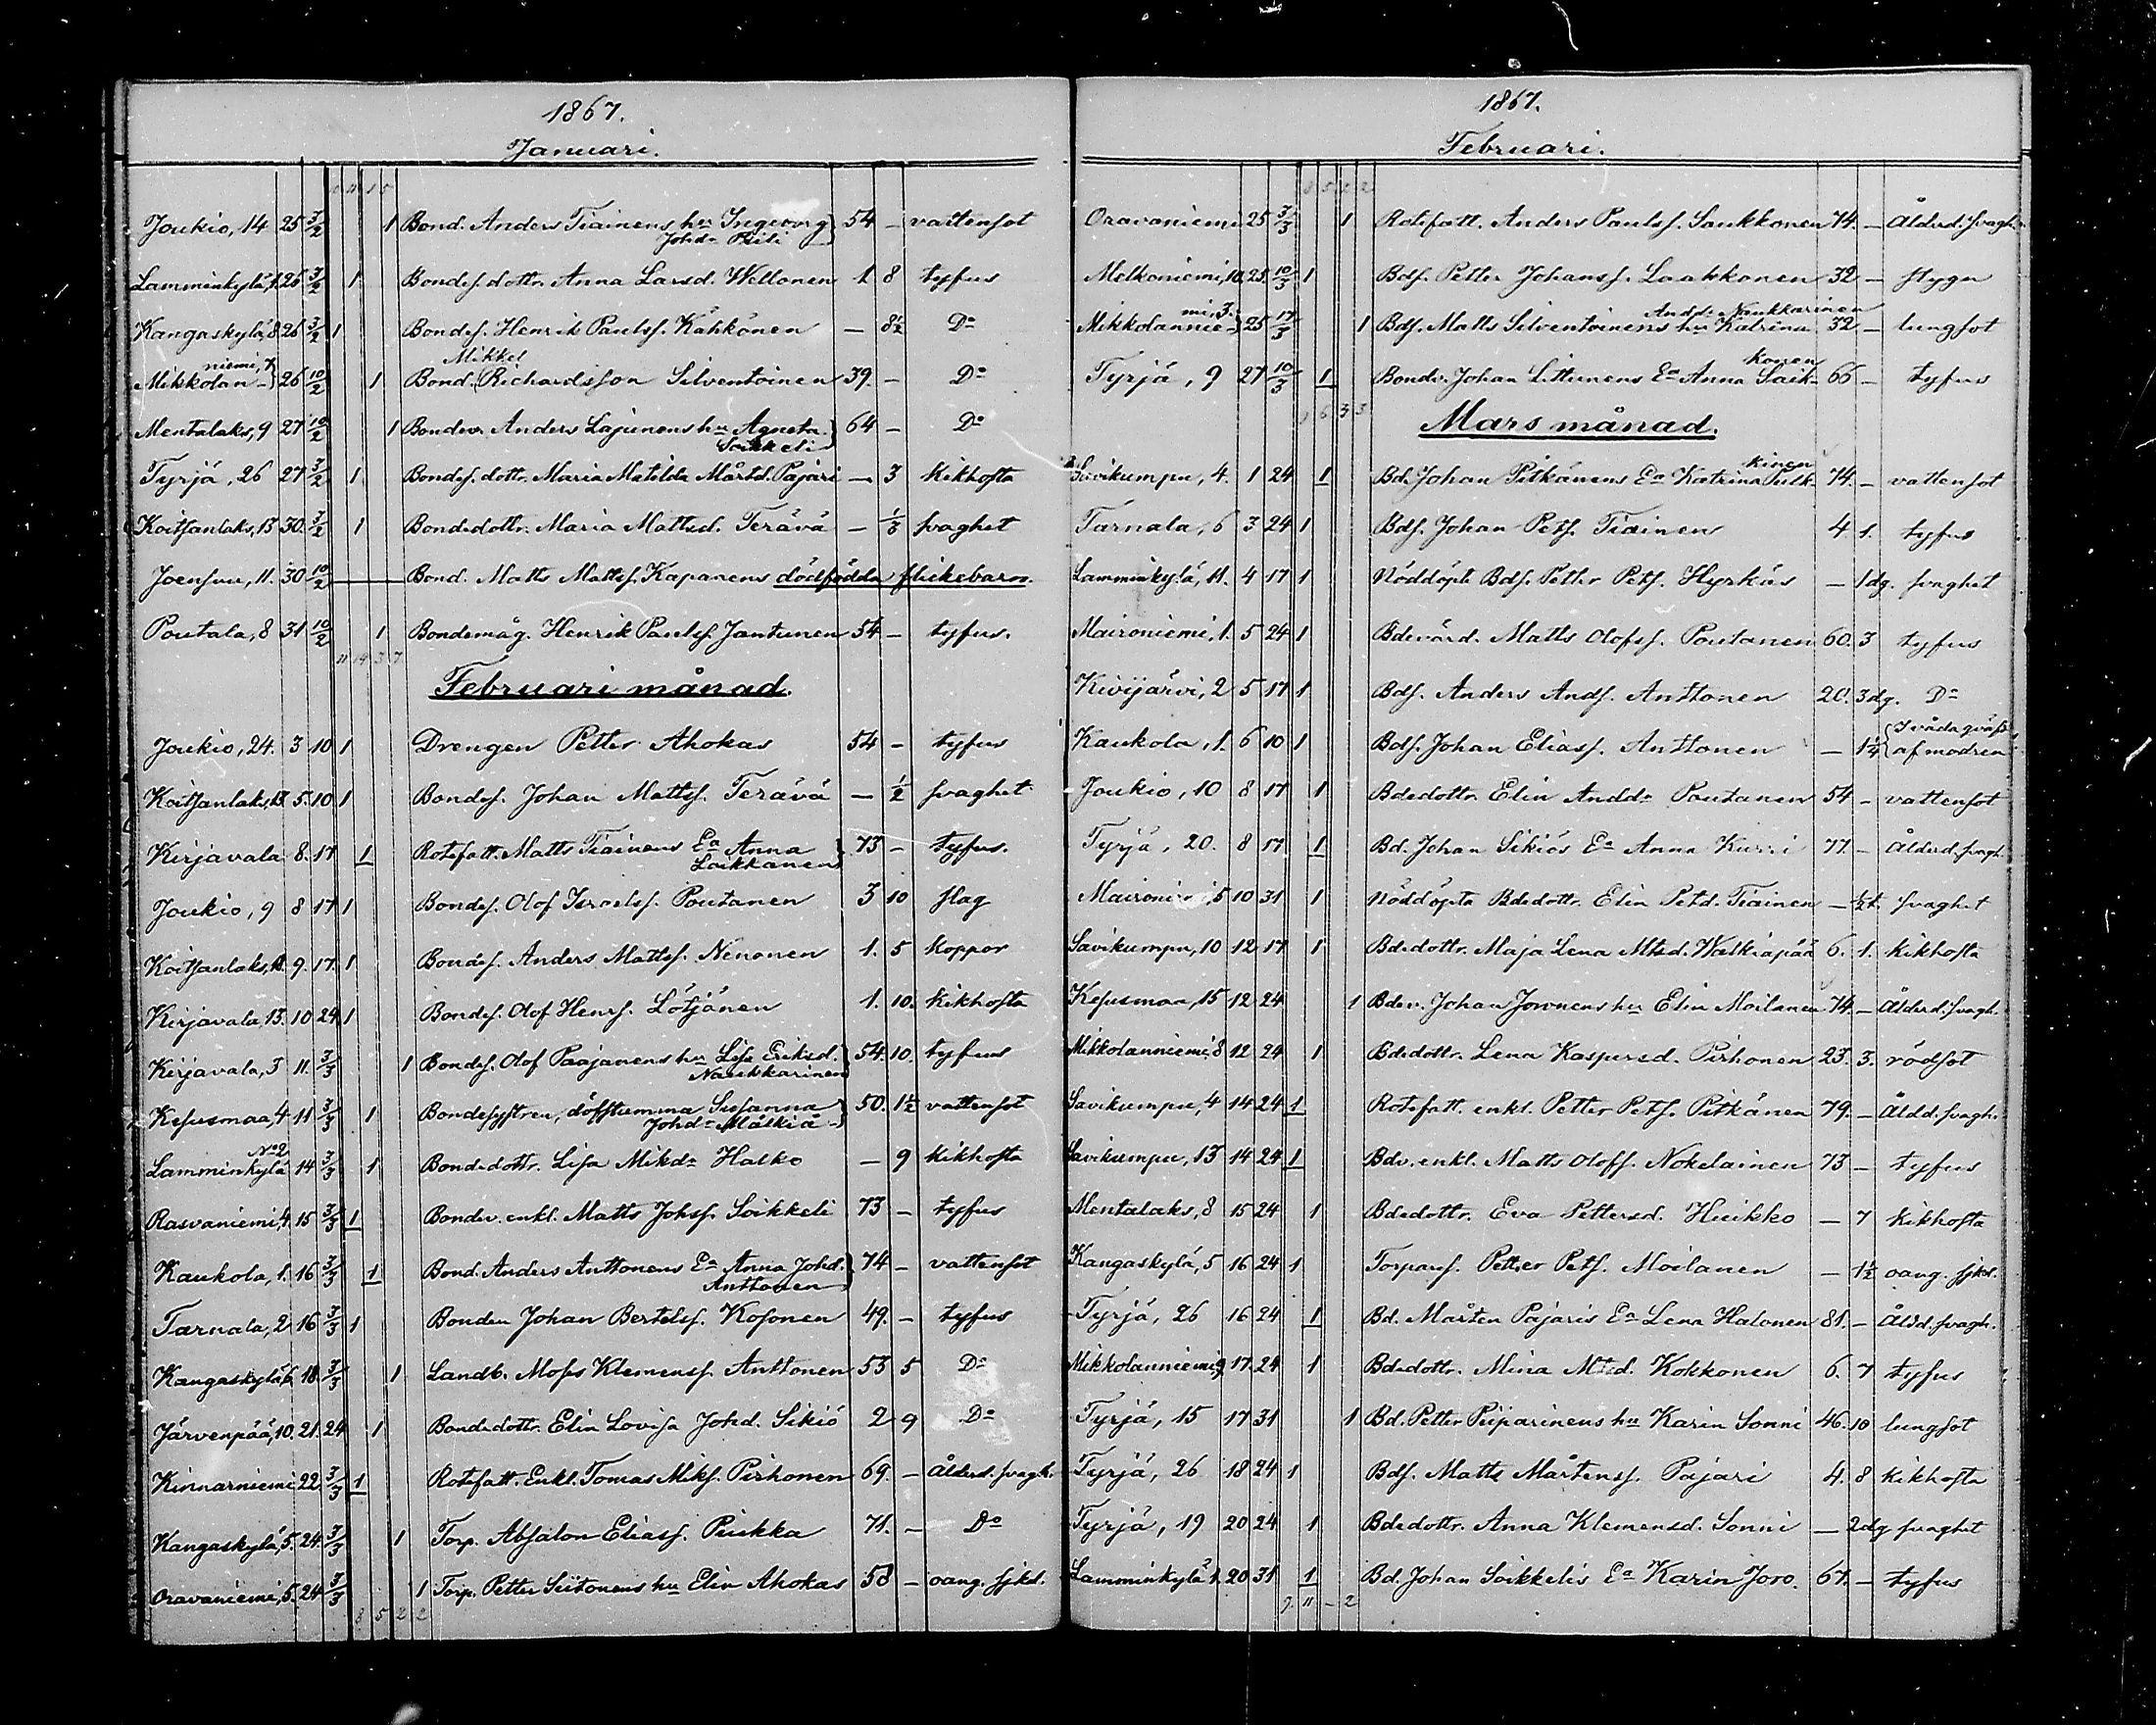 1867.
Januari.
11 5
Joukio, 14 25 3/2 1 Bond. Anders Tiainens hu Ingeborg 54 – vattensot
Johdr
Lamminkylä, 1. 26 3/2 1 Bondes. dottr. Anna Larsd. Wellonen 1 8 tyfus
Kangaskylä, 8 26 3/2 1 Bondes. Henrik Paulss. Kähkönen – 8½ Do
niemi, 7 Mikkel
Mikkolan- 26 10/2 1 Bond. Richardsson Silventoinen 39. – Do
Mentalaks, 9 27 10/2 1 Bondev. Anders Lajunens hu Agneta 64 – Do
Soikkeli
Tyrjä, 26 27 3/2 1 Bondes. dottr. Maria Matilda Mårtd. Pajari – 3 Kikhosta
Koitsanlaks, 13 30. 3/2 1 Bondedottr. Maria Mattsd. Terävä – 1/3 svaghet
Joensuu, 11. 30 10/2 Bond. Matts Mattss. Kapanens dödfödda flickebarn.
Poutala, 8 31 10/2 1 Bondemåg. Henrik Paulss. Jantunen 54 – tyfus.
11 14 3 7
Februari månad.
Joukio, 24. 3 10 1 Drengen Petter Ahokas 54 – tyfus
Koitsanlaks, 13 5. 10 1 Bondes. Johan Mattss. Terävä – ½ svaghet
Kirjavala 8. 17 1 Rotefatt. Matts Tiainens Ea Anna 73 – tyfus.
Loikkanen
Joukio, 9 8 17 1 Bondes. Olof Israelss. Poutanen 3 10 slag
Koitsanlaks, 9. 17. 1 Bondes. Anders Mattss. Nenonen 1. 5 koppor
Kirjavala, 13. 10 24 1 Bondes. Olof Henrs. Lötjönen 1. 10. Kikhosta
Kirjavala, 3 11. 3/3 1 Bondes. Olof Paajanens hu Lisa Eriksd. 54. 10. tyfus
Naukkarinen
Kesusmaa, 4 11 3/3 1 Bondesystren, döfstumma Susanna 50. 1½ vattensot
Johdr Mälkiä
No 2
Lamminkylä 14 3/3 1 Bondedottr. Lisa Mikdr Halko – 9 Kikhosta
Rasvaniemi, 4. 15 3/3 1 Bondev. enkl. Matts Johss. Soikkeli 73 – tyfus
Kaukola, 1. 16 3/3 1 Bond. Anders Anttonens Ea Anna Johd. 74 – vattensot
Anttonen
Tarnala, 2 16 3/3 1 Bonden Johan Bertelss. Kosonen 49. – tyfus
Kangaskylä, 6 18. 3/3 1 Landb. Moses Klemenss. Anttonen 53 5 Do
Järvenpää, 10. 21. 24 1 Bondedottr. Elin Lovisa Johd. Sikiö 2 9 Do
Kinnarniemi 22 3/3 1 Rotefatt. Enkl. Tomas Miks. Pirhonen 69. – Ålderd. svagh.
Kangaskylä, 5. 24. 3/3 1 Torp. Absalon Eliass. Puikka 71. – Do
Oravaniemi, 5. 24 3/3 1 Torp. Petter Siitonens hu Elin Ahokas 58 – oang. sjkd.
8 5 2 2
1867.
Februari.
8 5 2 2
Oravaniemi 25 3/3 1 Rotefatt. Anders Paulss. Saukkonen 74. – Ålderd. svagh.
Melkoniemi, 10. 25. 10/3 1 Bds. Petter Johanss. Laakkonen 32 – stygn
mi, 3. Andd: Naukkarinen
Mikkolannie- 25 17/3 1 Bds. Matts Silventoinens hu Katrina 32 – lungsot
konen
Tyrjä, 9 27 10/3 1 Bondev. Johan Littunens Ea Anna Saik- 66 – tyfus
9 6 3 3
Mars månad.
kinen
Savikumpu, 4. 1 24 1 Bd. Johan Pitkänens Ea Katrina Pulk- 74. – vattensot
Tarnala, 6 3 24 1 Bds. Johan Pets. Tiainen 4 1. tyfus
Lamminkylä, 11. 4 17 1 Nöddöpt Bds. Petter Pets. Hyrkäs – 1 dg. svaghet
Maironiemi, 1. 5 24 1 Bdevärd. Matts Olofss. Poutanen 60. 3 tyfus
Kivijärvi, 2 5 17 1 Bds. Anders Ands. Anttonen 20. 3 dg. Do
Kaukola, 1. 6 10 1 Bds. Johan Eliass. Anttonen – 1¼ af modren
Joukio, 10 8 17 1 Bdedottr. Elin Anddr Poutanen 54 – vattensot
Tyrjä, 20. 8 17. 1 Bd. Johan Sikiös Ea Anna Kurri 77. – Ålderd. svagh.
5 10 31 1 Nöddöpta Bdedottr. Elin Petd. Tiainen – ½ t. svaghet
Savikumpu, 10 12 17 1 Bdedottr. Maja Lena Mtsd. Walkiapää 6. 1. kikhosta
Kesusmaa, 15 12 24 1 Bdev. Johan Joronens hu Elin Moilanen 74. – Ålderd. svagh.
Mikkolanniemi, 8 12 24 1 Bdedottr. Lena Kaspersd. Pirhonen 23. 3. rödsot
Savikumpu, 4 14 24 1 Rotefatt. enkl. Petter Pets. Pitkänen 79. – Åldd. svagh.
Savikumpu, 13 14 24 1 Bdv. enkl. Matts Olofs. Nokelainen 73 – tyfus
Mentalaks, 8 15 24 1 Bdedottr. Eva Pettersd. Huikko – 7 Kikhosta
Kangaskylä, 5 16 24 1 Torpares. Petter Pets. Moilanen – 1½ oang. sjkd.
Tyrjä, 26 16 24 1 Bd. Mårten Pajaris Ea Lena Halonen 81. – Åldd. svagh.
Mikkolanniemi, 9 17. 24 1 Bdedottr. Mina Mtsd. Kokkonen 6. 7 tyfus
Tyrjä, 15 17 31 1 Bd. Petter Piiparinens hu Karin Sonni 46. 10 lungsot
Tyrjä, 26 18 24 1 Bds. Matts Mårtenss. Pajari 4. 8 Kikhosta
Tyrjä, 19 20 24 1 Bdedottr. Anna Klemensd. Sonni – 2 dg svaghet
Lamminkylä 1. 20 31 1 Bd. Johan Soikkelis Ea Karin Joro. 67. – tyfus
9. 11 – 2